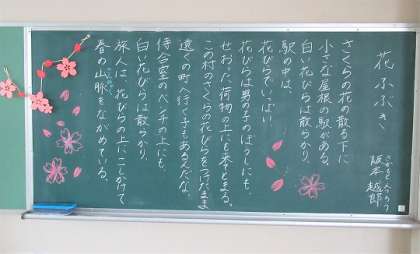 花ふぶき
さかもとえつろう
阪本越郎
さくらの花の散る下に
小さな屋根の駅がある。
白い花びらは散りかかり、
駅の中は、
花びらでいっぱい
花びらは男の子のぼうしにも、
せおった荷物の上にも来てとまる。
この村のさくらの花びらをつけたまま
遠くの町へ行く子もあるんだな。
待合室のベンチの上にも、
白い花びらは散りかかり、
旅人は、花びらの上にこしかけて
春の山脈をながめている。